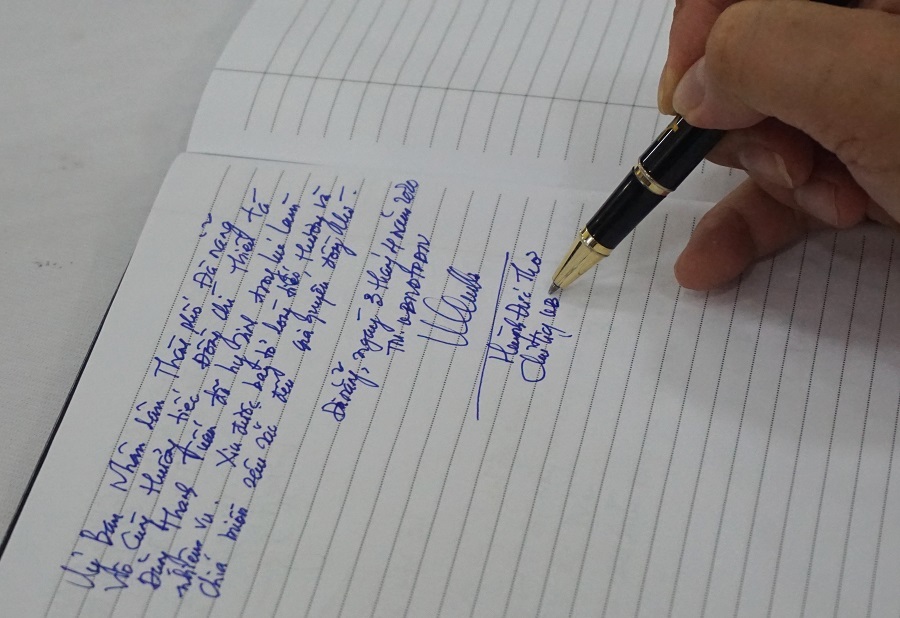 Uỷ Ban Nhân Dân Thành phố Đà Nẵng
Vô Cùng thương tiếc Đồng chí Thiếu tá
Đặng Thanh Tuấn đã hy sinh trong khi làm
nhiệm vụ. Xin được bày tỏ lòng tiếc thương và
chia buồn sâu sắc đến gia quyến đồng chí.
Đà Nẵng, ngày 3 tháng 4 năm 2020
TM. UBNDTPĐN
Huỳnh Đức Thơ
Chủ tịch UB